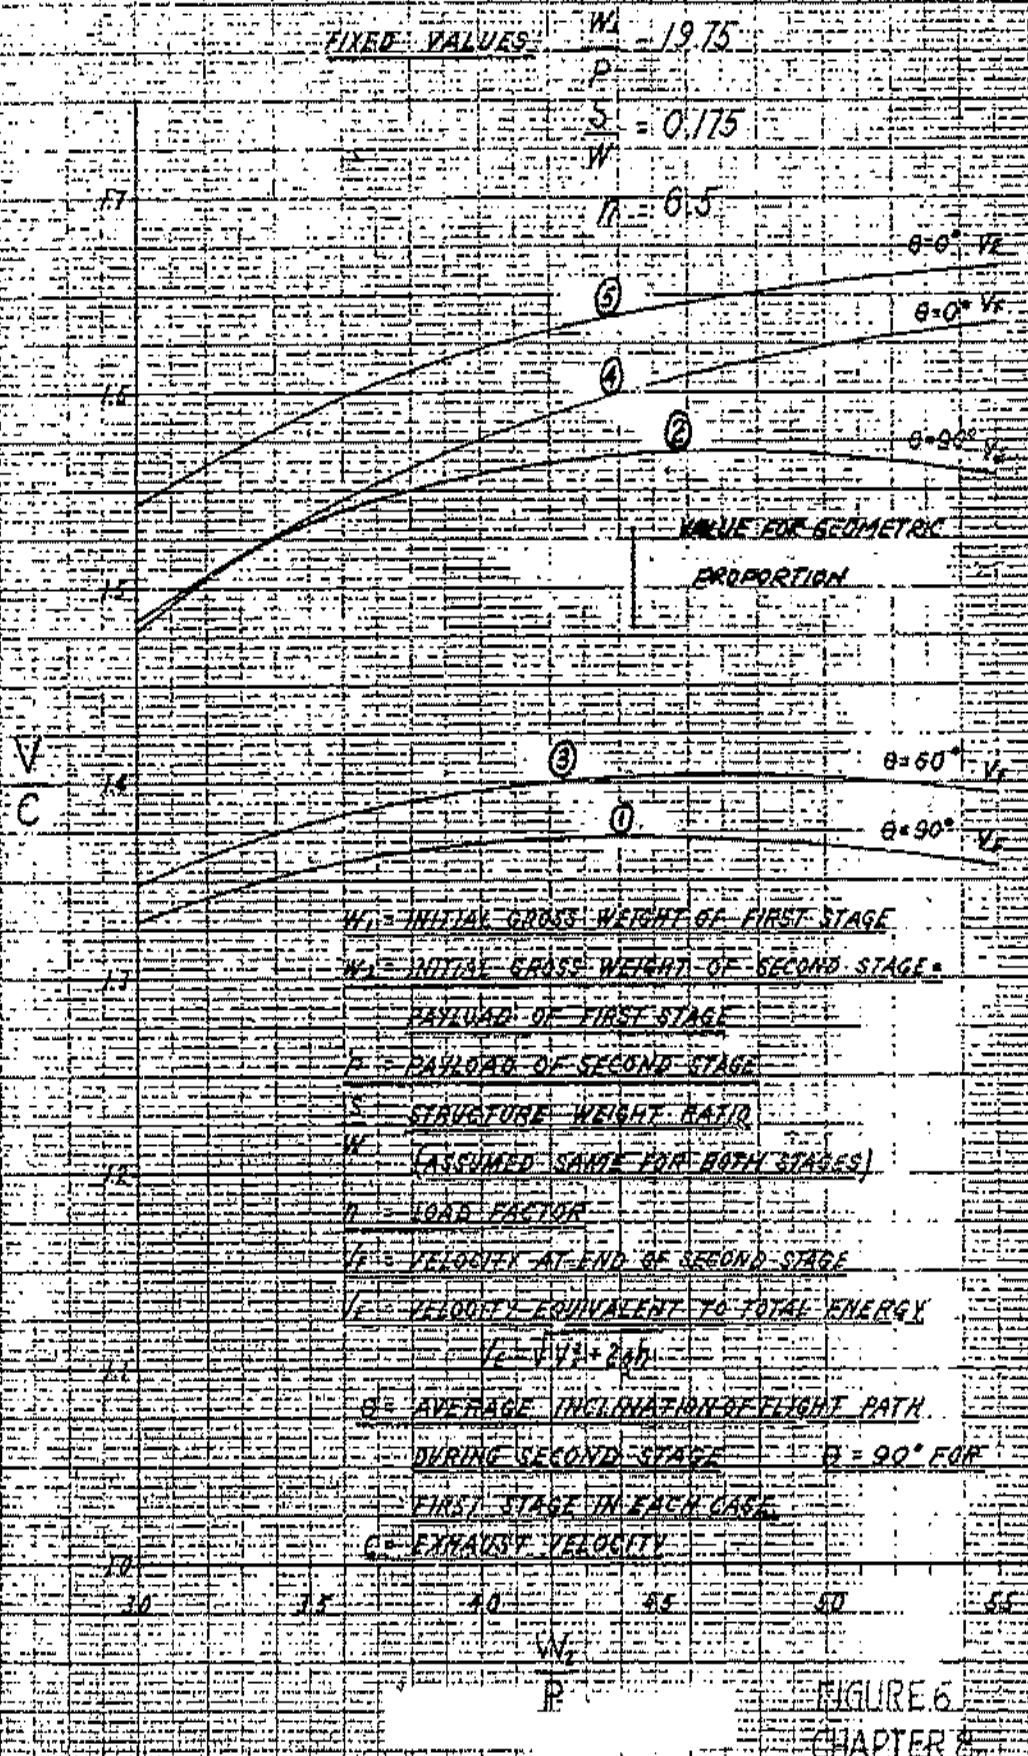 FIXED VALUES W1/P = 19.75
S/W = 0.175
n = 6.5
1.7
θ=0° VE
⑤
θ=0° VF
④
1.6
②
θ=90° VE
VALUE FOR GEOMETRIC
PROPORTION
1.5
V/C
③
θ=60° VF
1.4
①
θ=90° VF
W1 = INITIAL GROSS WEIGHT OF FIRST STAGE
W2 = INITIAL GROSS WEIGHT OF SECOND STAGE =
1.3
PAYLOAD OF FIRST STAGE
P = PAYLOAD OF SECOND STAGE
S/W STRUCTURE WEIGHT RATIO
(ASSUMED SAME FOR BOTH STAGES)
1.2
n = LOAD FACTOR
VF = VELOCITY AT END OF SECOND STAGE
VE = VELOCITY EQUIVALENT TO TOTAL ENERGY
VE = √VF²+2gh
1.1
θ = AVERAGE INCLINATION OF FLIGHT PATH
DURING SECOND STAGE θ = 90° FOR
FIRST STAGE IN EACH CASE
C = EXHAUST VELOCITY
1.0
3.0 3.5 4.0 4.5 5.0 5.5
W2/P
FIGURE 6
CHAPTER 8